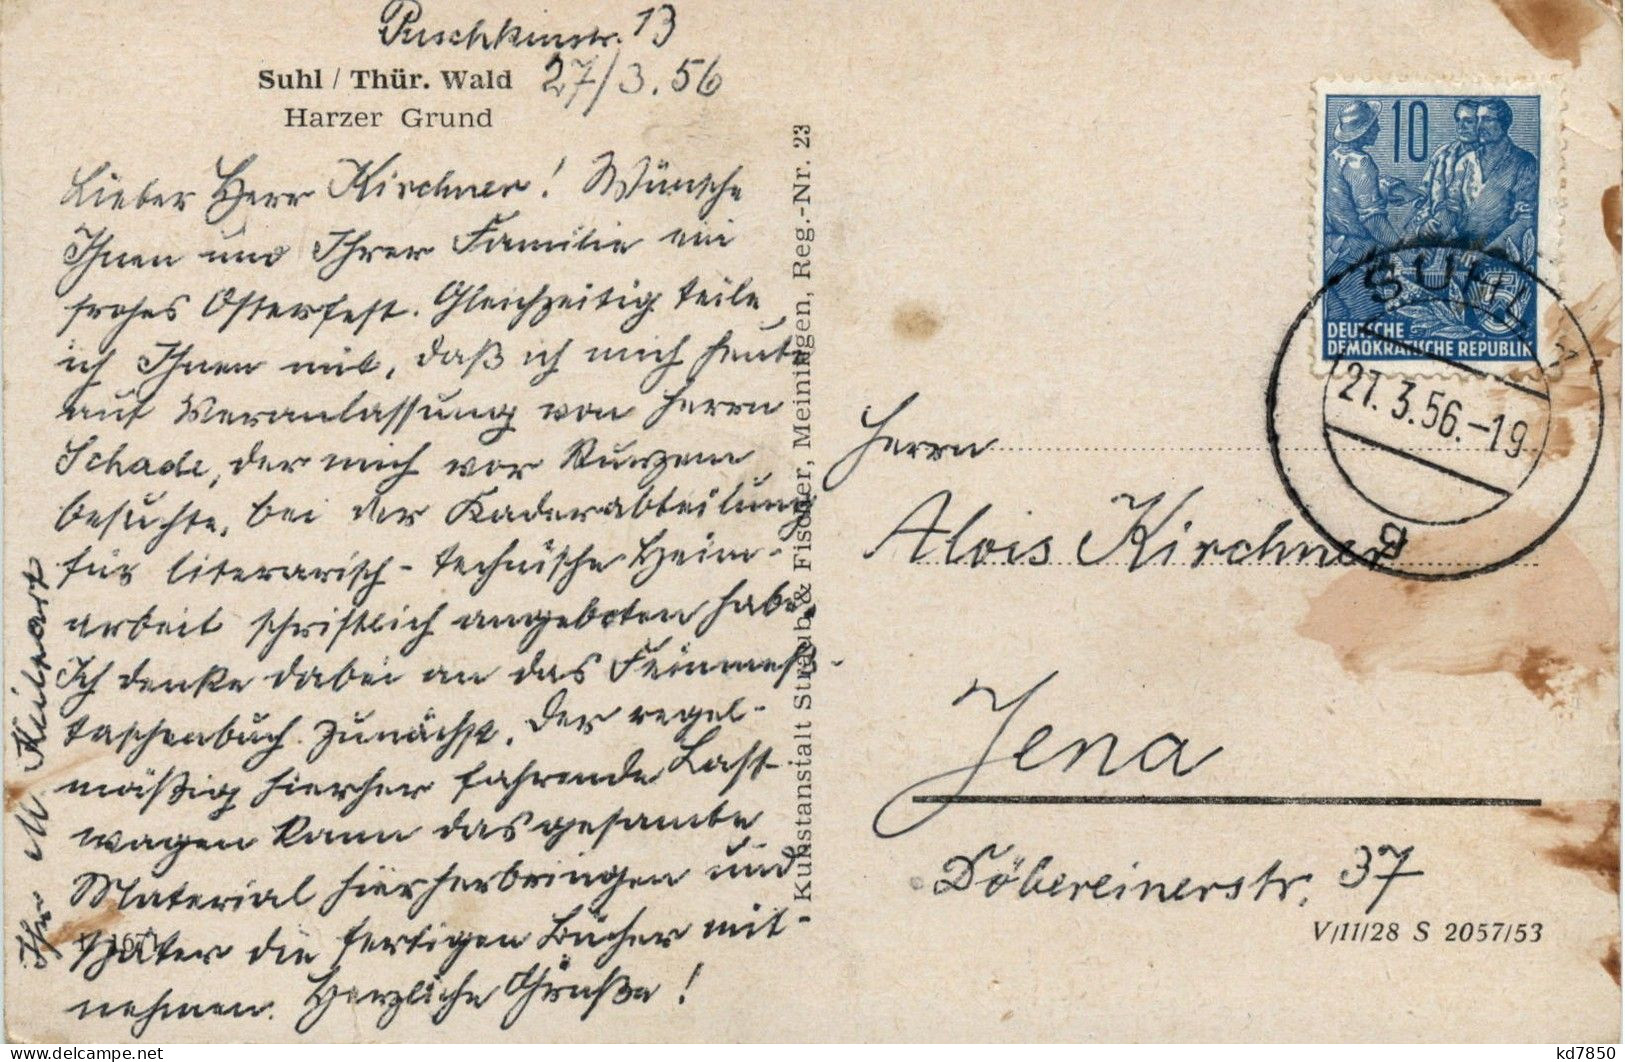 Puschkinstr. 13
Suhl / Thür. Wald 27/3.56
Harzer Grund
Lieber Herr Kirchner! Wünsche
Ihnen und Ihrer Familie ein
frohes Osterfest. Gleichzeitig teile
ich Ihnen mit, daß ich mich heute
auf Veranlassung von Herrn
Schade, der mich vor Kurzem
besuchte, bei der Kaderabteilung
für literarisch-technische Heim-
arbeit schriftlich angeboten habe.
Ich denke dabei an das Feinmeß-
taschenbuch zunächst. Der regel-
mäßig hierher fahrende Last-
wagen kann das gesamte
Material hierherbringen und
später die fertigen Bücher mit-
nehmen. Herzliche Grüße!
Ihr M
Kunstanstalt Straub & Fischer, Meiningen, Reg.-Nr. 23
10
DEUTSCHE
DEMOKRATISCHE REPUBLIK
SUHL
27.3.56.-19
B
Herrn
Alois Kirchner
Jena
Döbereinerstr. 37
V/11/28 S 2057/53
kd7850